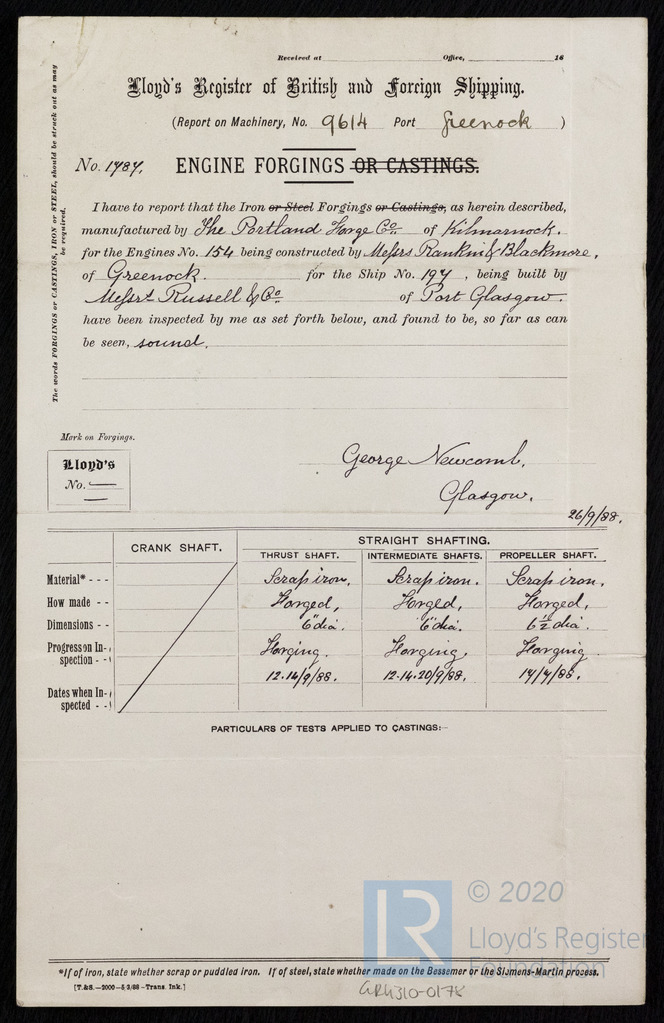 Received at Office, 18
Lloyd's Register of British and Foreign Shipping.
(Report on Machinery, No. 9614 Port Greenock )
No. 1787. ENGINE FORGINGS OR CASTINGS.
The words FORGINGS or CASTINGS, IRON or STEEL, should be struck out as may be required.
I have to report that the Iron or Steel Forgings or Castings, as herein described,
manufactured by The Portland Forge Co. of Kilmarnock.
for the Engines No. 154 being constructed by Messrs Rankin & Blackmore,
of Greenock. for the Ship No. 197, being built by
Messrs Russell & Co of Port Glasgow.
have been inspected by me as set forth below, and found to be, so far as can
be seen, sound.
Mark on Forgings.
Lloyd's
No. —
George Newcomb,
Glasgow.
26/9/88.
CRANK SHAFT. STRAIGHT SHAFTING.
THRUST SHAFT. INTERMEDIATE SHAFTS. PROPELLER SHAFT.
Material* - - - Scrap iron. Scrap iron. Scrap iron.
How made - - Forged, Forged, Forged,
Dimensions - - 6" dia. 6" dia. 6½" dia.
Progress on Inspection - - Forging. Forging. Forging.
Dates when Inspected - - 12.14/9/88. 12.14.20/9/88. 17/7/88.
PARTICULARS OF TESTS APPLIED TO CASTINGS:—
LR © 2020
Lloyd's Register
Foundation
*If of iron, state whether scrap or puddled iron. If of steel, state whether made on the Bessemer or the Siemens-Martin process.
[T.&S.—2000—5/3/88—Trans. Ink.]
GRK310-0178